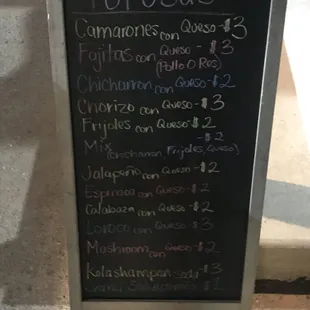 Pupusas
Camarones con Queso - $3
Fajitas con Queso - $3
(Pollo O Res)
Chicharron con Queso - $2
Chorizo con Queso - $3
Frijoles con Queso - $2
Mix - $2
(Chicharron, Frijoles, Queso)
Jalapeño con Queso - $2
Espinaca con Queso - $2
Calabaza con Queso - $2
Loroco con Queso - $3
Mushroom con Queso - $2
Kolashampan Soda - $3